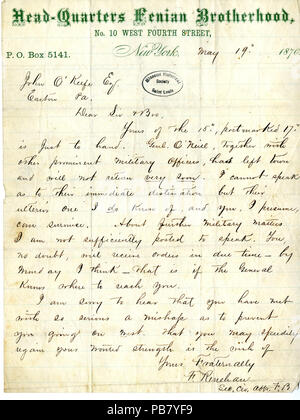 Head-Quarters Fenian Brotherhood,
No. 10 WEST FOURTH STREET,
P. O. Box 5141.
New York. May 19th 1870
Missouri Historical
Society
Saint Louis
John O'Keefe Esq
Easton Pa.
Dear Sir & Bro.
Yours of the 15th, postmarked 17th
is just to hand. Genl. O'Neill, together with
other prominent Military Officers, has left town
and will not return very soon. I cannot speak
as to their immediate destination but their
ulterior one I do know of and you, I presume
can surmise. About further Military matters
I am not sufficiently posted to speak. You,
no doubt, will receive orders in due time - by
Monday I think - that is if the General
knows where to reach you.
I am sorry to hear that you have met
with so serious a mishap as to prevent
you going on west. That you may speedily
regain your wonted strength is the wish of
Yours Fraternally
F.
Sec. Civ. F.B.
alamy
Image ID: PB7YF9
www.alamy.com